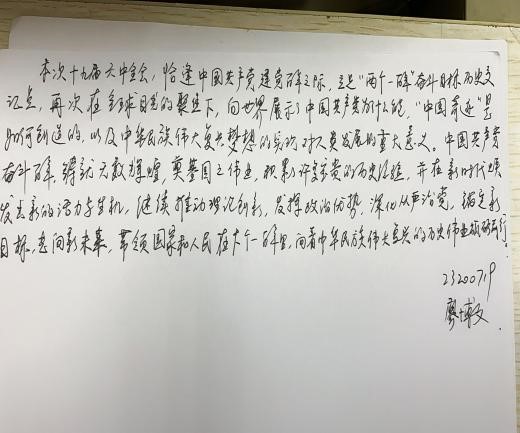 本次十九届六中全会，恰逢中国共产党建党百年之际，立足“两个一百年”奋斗目标历史交
汇点，再次在全球目光的聚焦下，向世界展示了中国共产党为什么能，“中国奇迹”是
如何创造的，以及中华民族伟大复兴梦想的实现对人类发展的重大意义。中国共产党
奋斗百年，铸就无数辉煌，奠基国之伟业，积累许多宝贵的历史经验，并在新时代焕
发出新的活力与生机，继续推动理论创新，发挥政治优势，深化从严治党，锚定新
目标，走向新未来，带领国家和人民在下个一百年里，向着中华民族伟大复兴的历史伟业砥砺前行。
23200719
廖